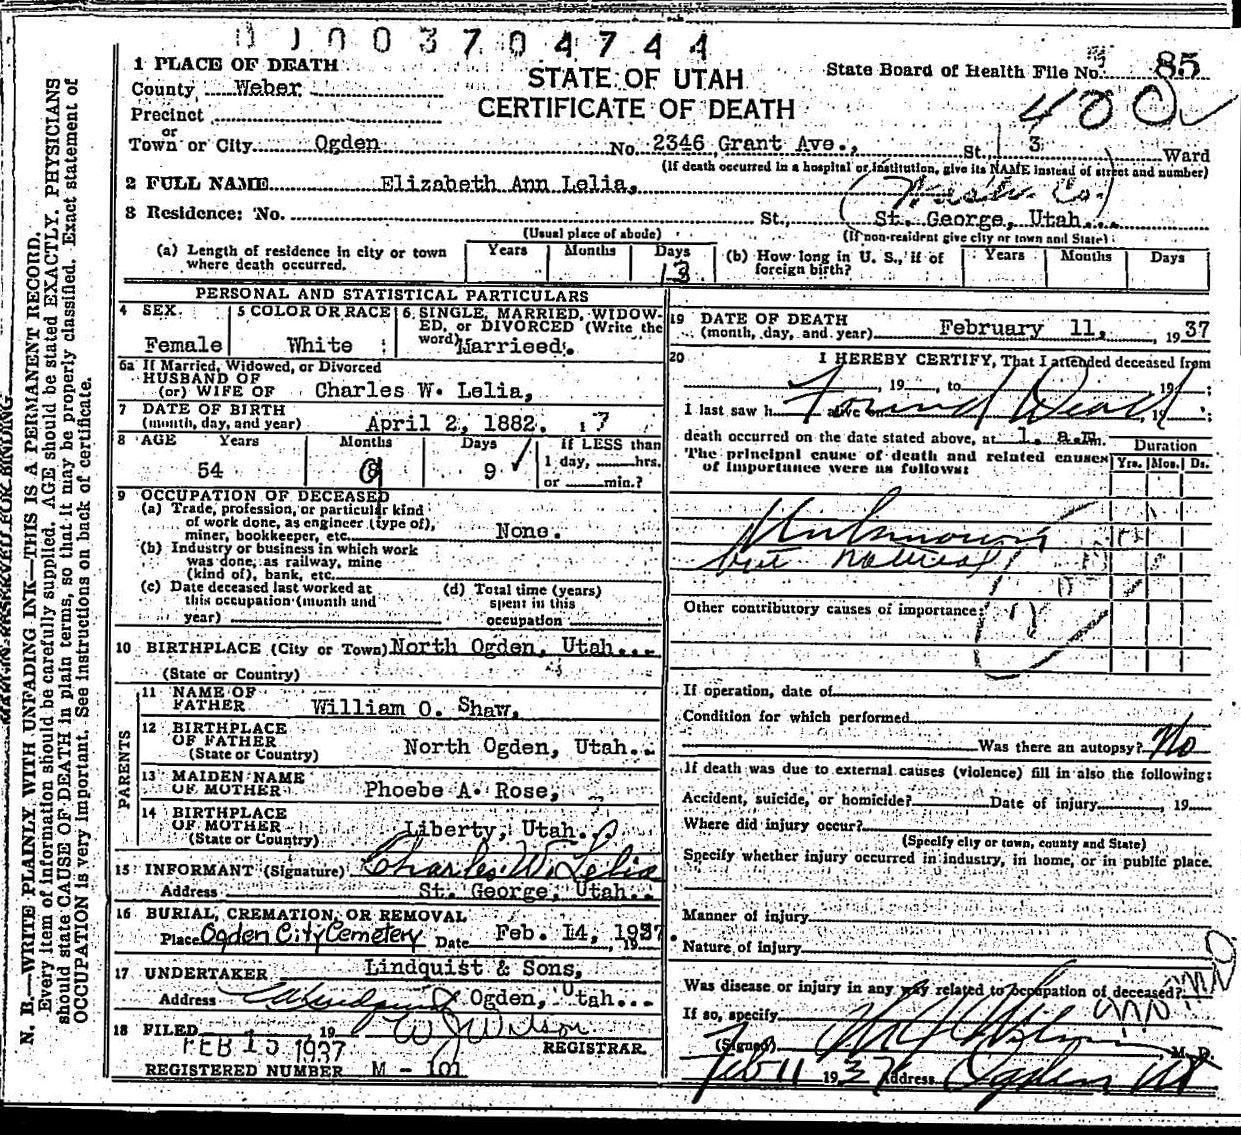 0 0 0 0 3 7 0 4 7 4 4
1 PLACE OF DEATH
STATE OF UTAH
CERTIFICATE OF DEATH
State Board of Health File No. 85
400
County Weber
Precinct
or
Town or City Ogden No. 2346 Grant Ave., St., 3 Ward
(If death occurred in a hospital or institution, give its NAME instead of street and number)
2 FULL NAME Elizabeth Ann Lelia,
(Wash. Co.)
3 Residence: No. St., St. George, Utah...
(Usual place of abode) (If non-resident give city or town and State)
(a) Length of residence in city or town where death occurred. Years Months Days 3
(b) How long in U. S., if of foreign birth? Years Months Days
PERSONAL AND STATISTICAL PARTICULARS
4 SEX Female
5 COLOR OR RACE White
6 SINGLE, MARRIED, WIDOWED, or DIVORCED (Write the word) Marrieed.
6a If Married, Widowed, or Divorced
HUSBAND OF
(or) WIFE OF Charles W. Lelia,
7 DATE OF BIRTH
(month, day, and year) April 2, 1882. 17
8 AGE Years Months Days If LESS than
54 9 1 day, hrs.
or min.?
9 OCCUPATION OF DECEASED
(a) Trade, profession, or particular kind
of work done, as engineer (type of),
miner, bookkeeper, etc. None.
(b) Industry or business in which work
was done, as railway, mine
(kind of), bank, etc.
(c) Date deceased last worked at
this occupation (month and
year)
(d) Total time (years)
spent in this
occupation
10 BIRTHPLACE (City or Town) North Ogden, Utah...
(State or Country)
PARENTS
11 NAME OF
FATHER William O. Shaw,
12 BIRTHPLACE
OF FATHER
(State or Country) North Ogden, Utah..
13 MAIDEN NAME
OF MOTHER Phoebe A. Rose,
14 BIRTHPLACE
OF MOTHER
(State or Country) Liberty, Utah.
15 INFORMANT (Signature) Charles W. Lelia
Address St. George, Utah..
16 BURIAL, CREMATION, OR REMOVAL
Place Ogden City Cemetery Date Feb. 14, 1937
17 UNDERTAKER Lindquist & Sons,
Address Ogden, Utah...
18 FILED 19 W J Wilson
FEB 15 1937 REGISTRAR.
REGISTERED NUMBER M - 101
19 DATE OF DEATH
(month, day, and year) February 11, 1937
20 I HEREBY CERTIFY, That I attended deceased from
, 19 , to 19 ;
Found Dead
I last saw h alive on , 19 ;
death occurred on the date stated above, at 1. a.m.
The principal cause of death and related causes
of importance were as follows:
Duration
Yrs. Mos. Ds.
Unknown
but natural
Other contributory causes of importance:
If operation, date of
Condition for which performed
Was there an autopsy? No
If death was due to external causes (violence) fill in also the following:
Accident, suicide, or homicide? Date of injury , 19
Where did injury occur?
(Specify city or town, county and State)
Specify whether injury occurred in industry, in home, or in public place.
Manner of injury
Nature of injury
Was disease or injury in any way related to occupation of deceased?
If so, specify
(Signed) W J Wilson M. D.
Feb 11 1937 Address Ogden Ut
MARGIN RESERVED FOR BINDING.
N. B.—WRITE PLAINLY, WITH UNFADING INK—THIS IS A PERMANENT RECORD.
Every item of information should be carefully supplied. AGE should be stated EXACTLY. PHYSICIANS
should state CAUSE OF DEATH in plain terms, so that it may be properly classified. Exact statement of
OCCUPATION is very important. See instructions on back of certificate.